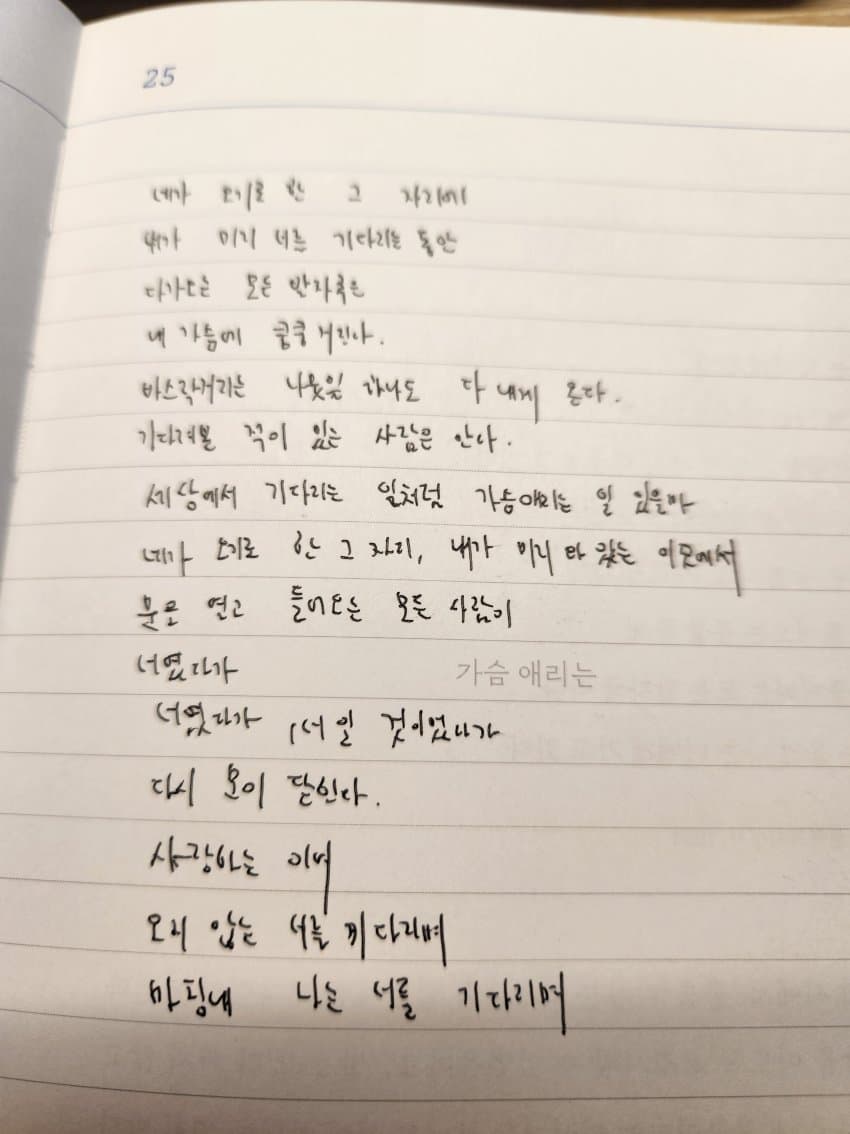 25
네가 오기로 한 그 자리에
내가 미리 너를 기다리는 동안
다가오는 모든 발자국은
내 가슴에 쿵쿵거린다.
바스락거리는 나뭇잎 하나도 다 내게 온다.
기다려본 적이 있는 사람은 안다.
세상에서 기다리는 일처럼 가슴애리는 일 있을까
네가 오기로 한 그 자리, 내가 미리 와 있는 이곳에서
문을 열고 들어오는 모든 사람이
너였다가
가슴 애리는
너였다가, 너일 것이었다가
다시 문이 닫힌다.
사랑하는 이여
오지 않는 너를 기다리며
마침내 나는 너를 기다리며